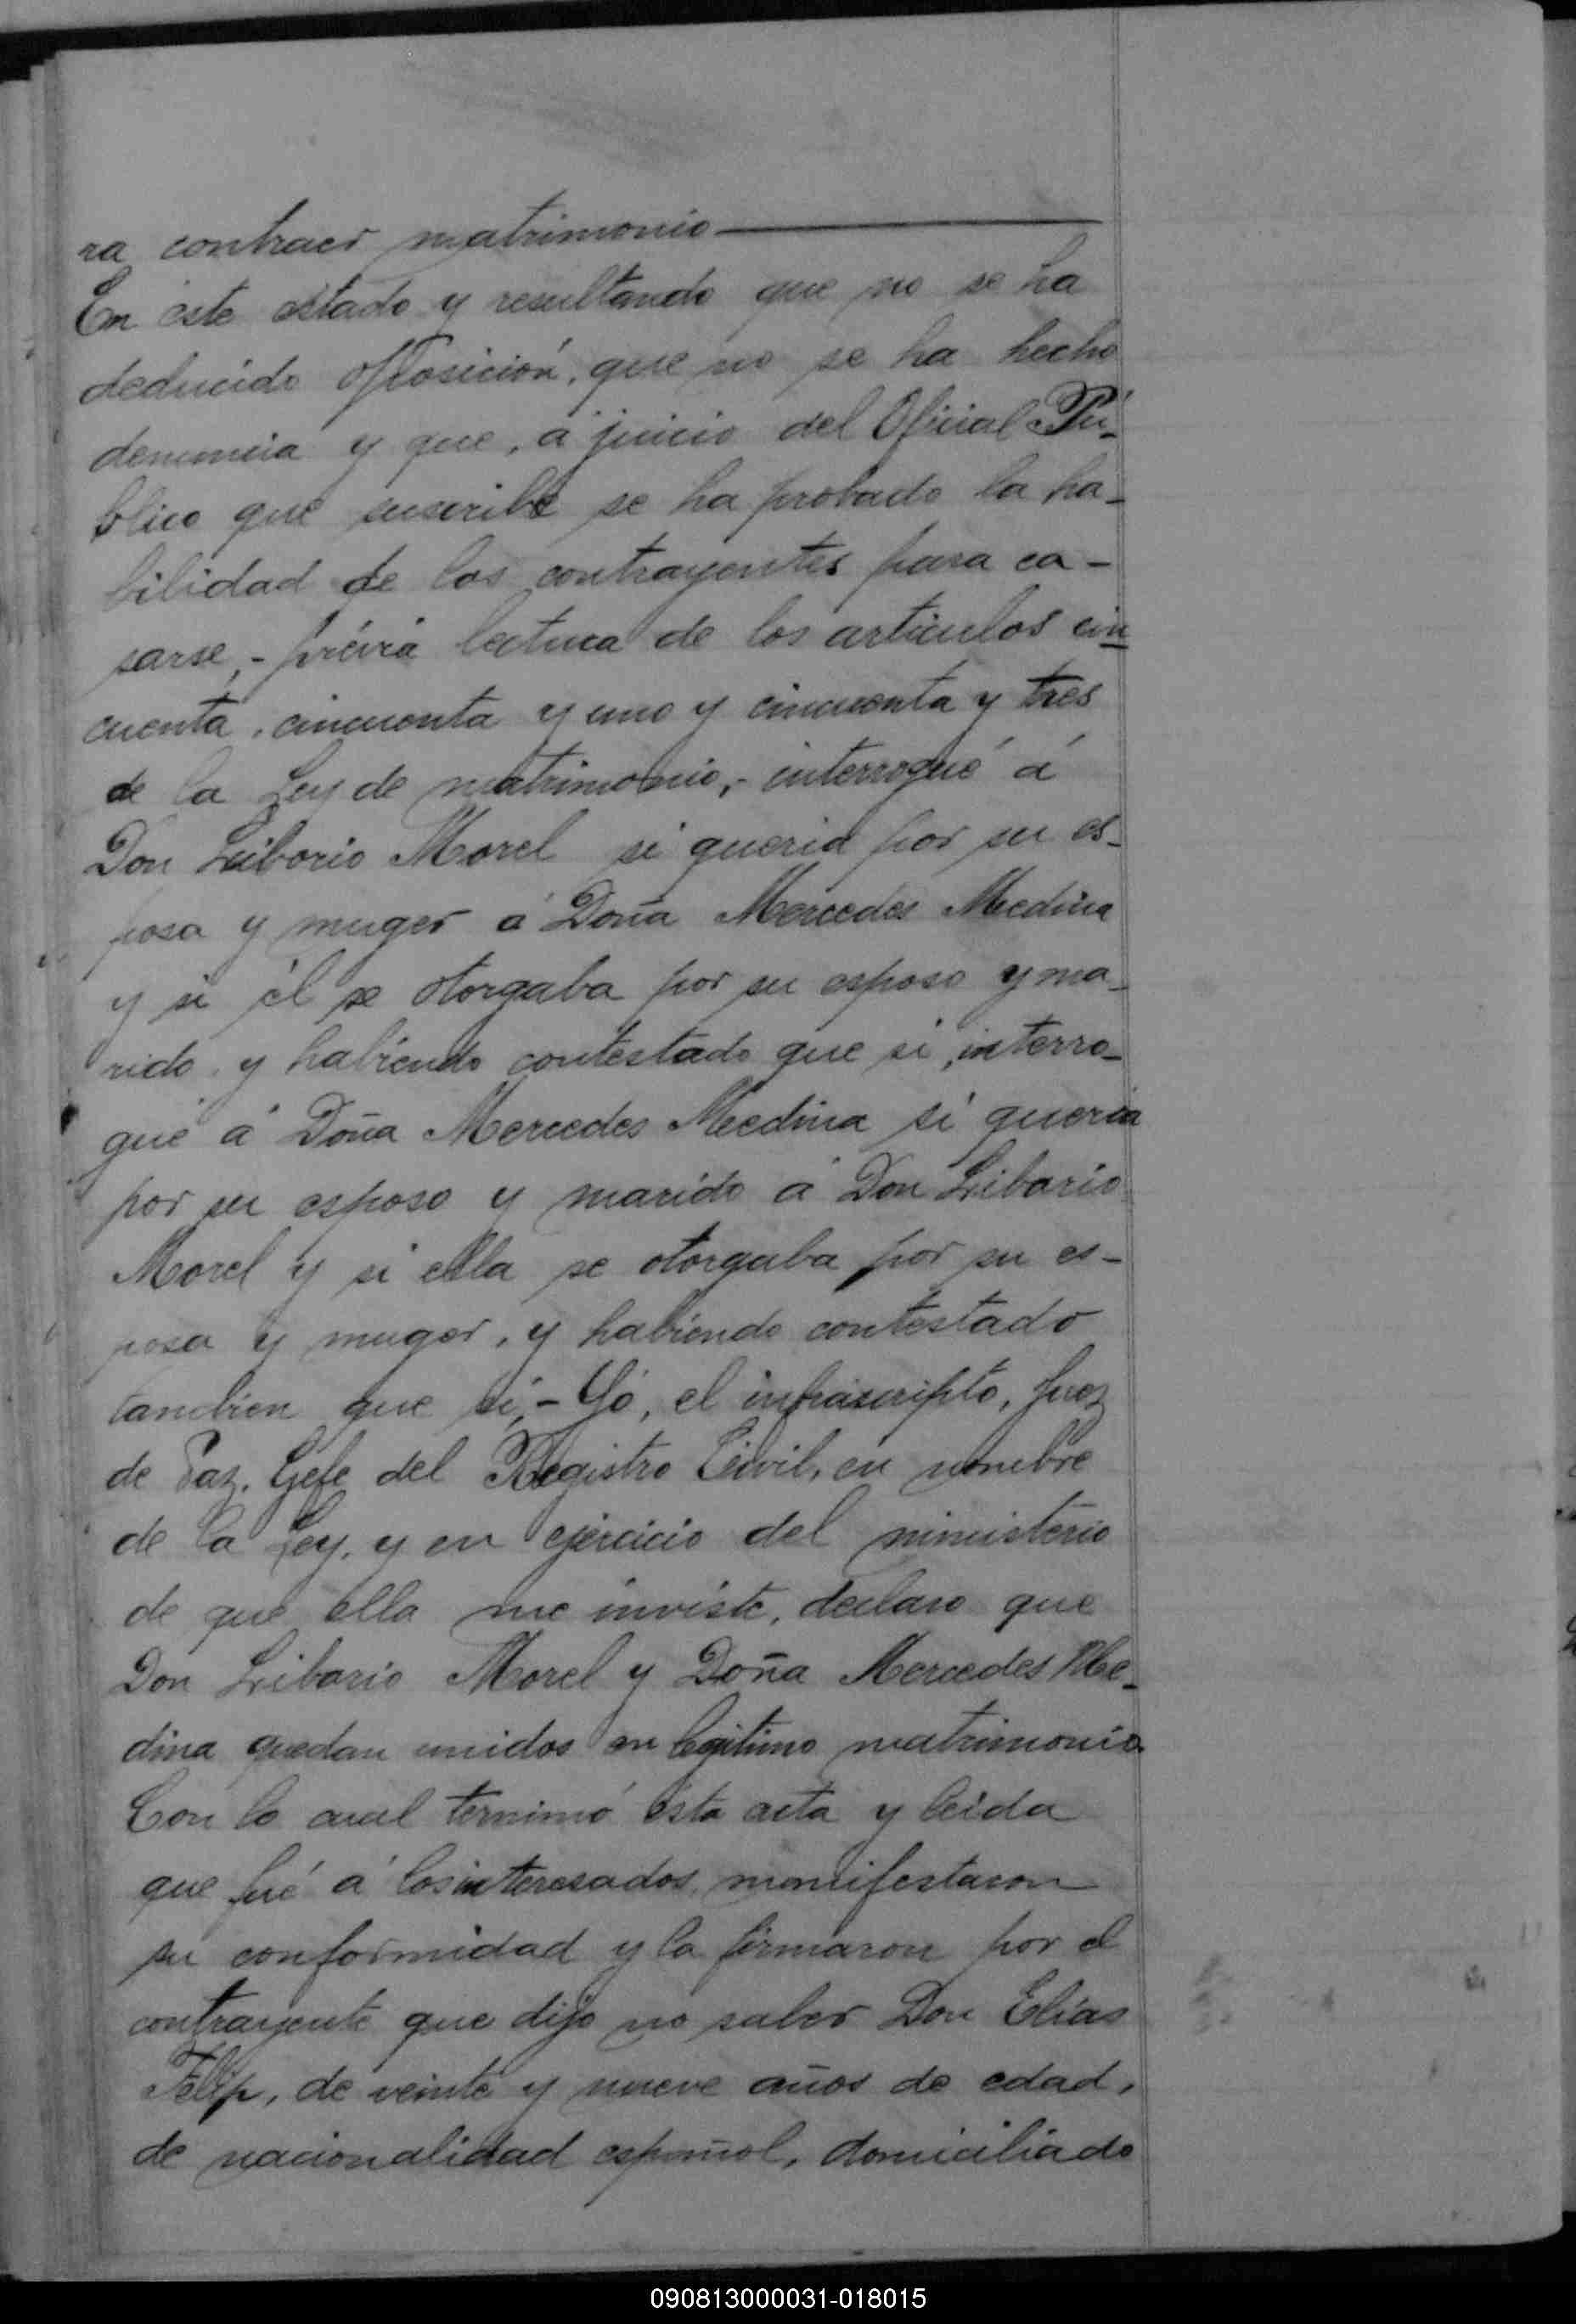 ra contraer matrimonio
En éste estado y resultando que no se ha
deducido oposición, que no se ha hecho
denuncia y que, á juicio del Oficial Pú-
blico que suscribe se ha probado la ha-
bilidad de los contrayentes para ca-
sarse, - prévia lectura de los artículos cin
cuenta, cincuenta y uno y cincuenta y tres
de la Ley de matrimonio, - interrogué á
Don Liborio Morel si queria por su es-
posa y muger á Doña Mercedes Medina
y si él se otorgaba por su esposo y ma-
rido, y habiendo contestado que si, interro-
gué á Doña Mercedes Medina si queria
por su esposo y marido á Don Liborio
Morel y si ella se otorgaba por su es-
posa y muger, y habiendo contestado
tambien que si, - Yó, el infrascripto, Juez
de Paz, Gefe del Registro Civil, en nombre
de la Ley, y en ejercicio del ministerio
de que ella me inviste, declaro que
Don Liborio Morel y Doña Mercedes Me-
dina quedan unidos en legitimo matrimonio.
Con lo cual terminó ésta acta y leida
que fué á los interesados, manifestaron
su conformidad y la firmaron por el
contrayente que dijo no saber Don Elías
Felip, de veinte y nueve años de edad,
de nacionalidad español, domiciliado
090813000031-018015